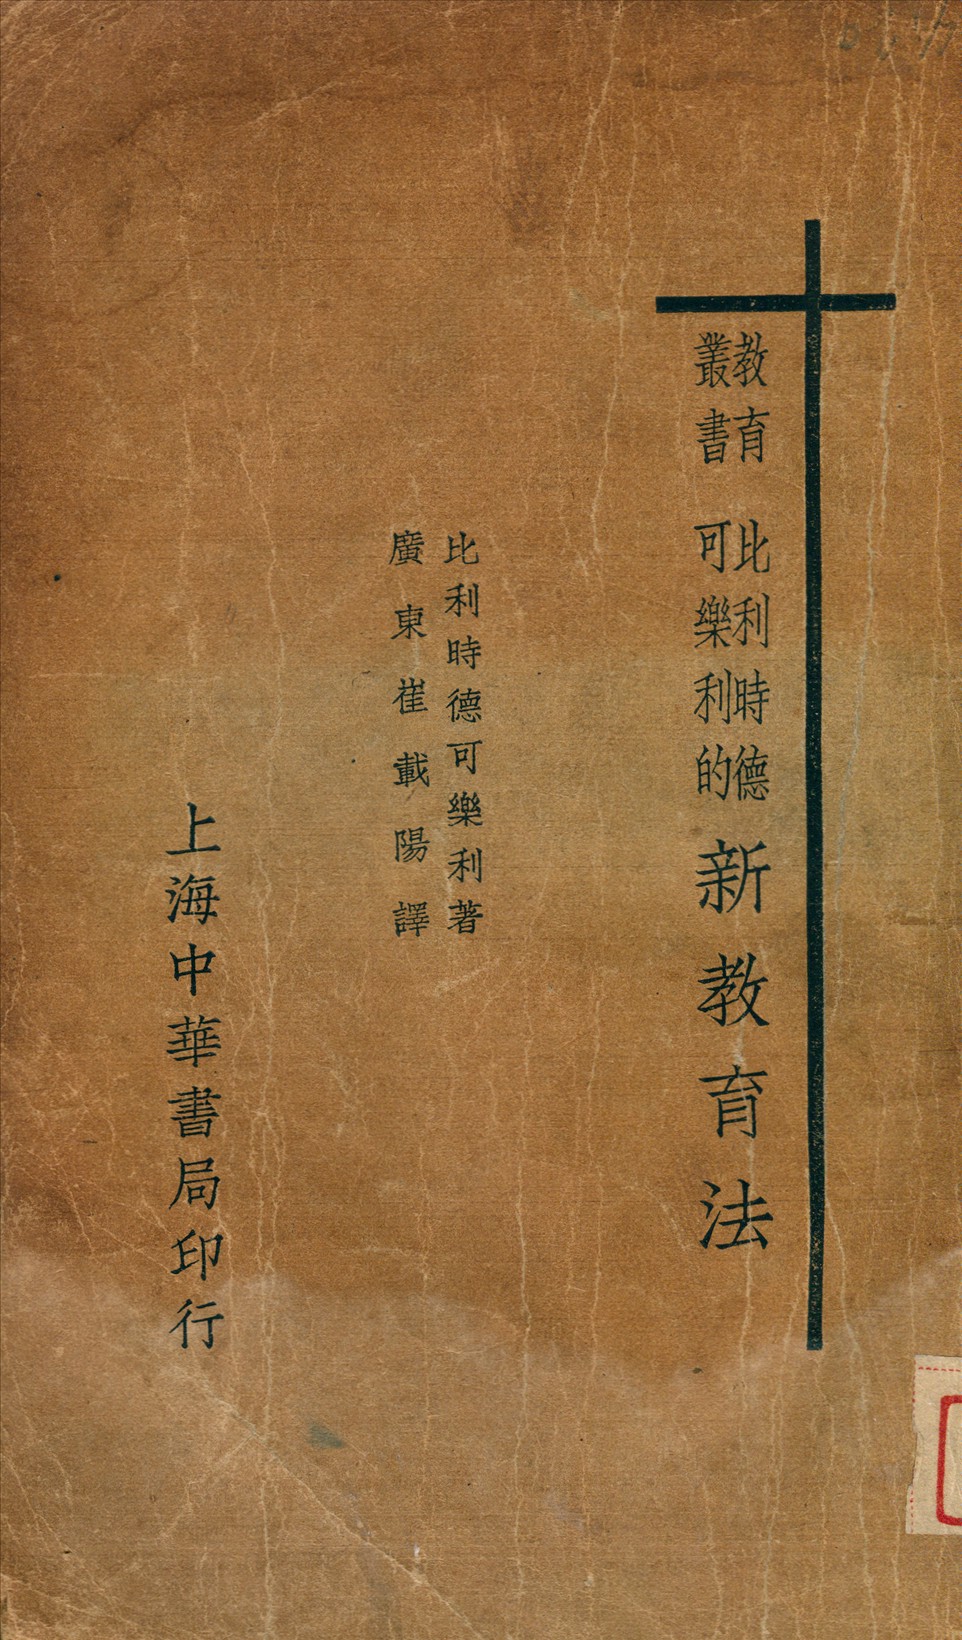 教育叢書
比利時德可樂利的
新教育法
比利時德可樂利著
廣東崔載陽譯
上海中華書局印行